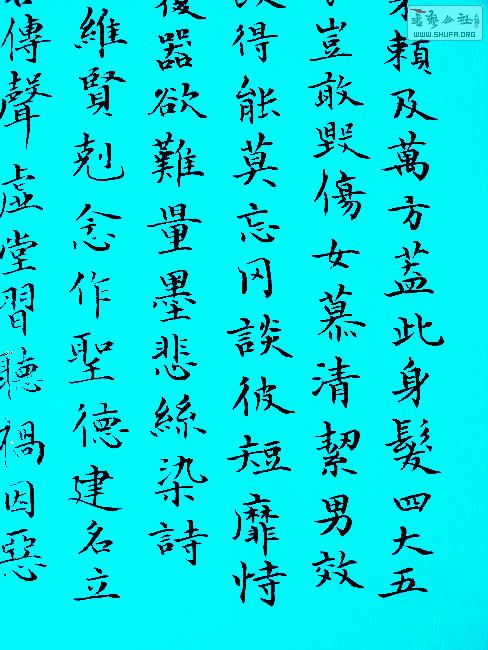 賴及萬方蓋此身髮四大五
豈敢毀傷女慕清絜男效
得能莫忘罔談彼短靡恃
器欲難量墨悲絲染詩
維賢剋念作聖德建名立
傳聲虛堂習聽禍因惡
書藝公社
WWW.SHUFA.ORG